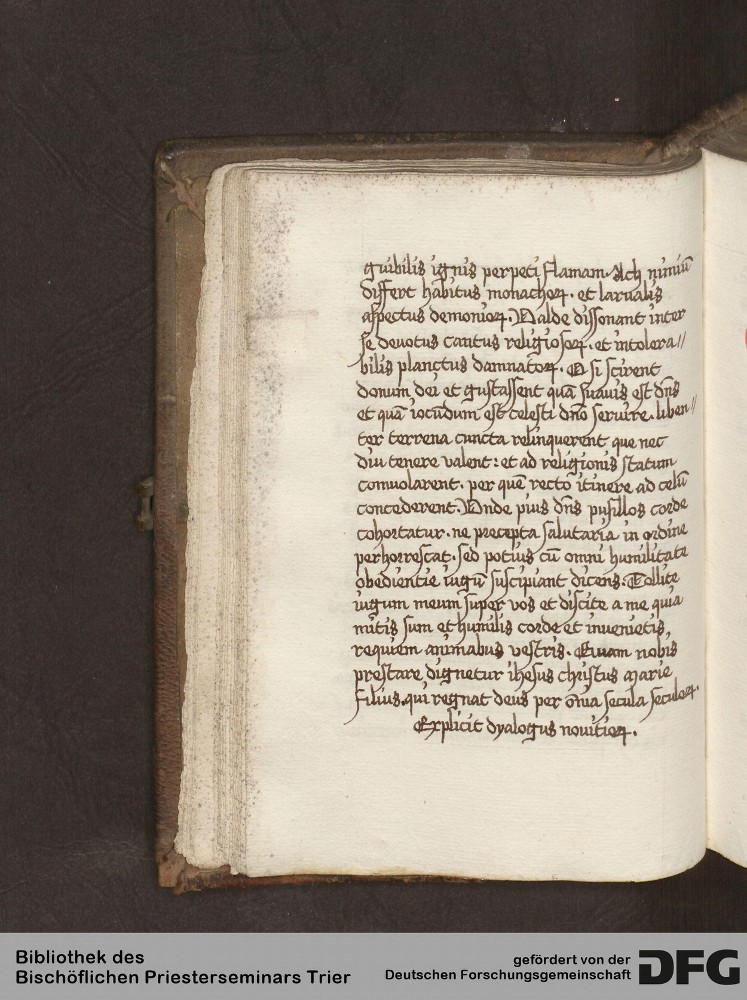 guibilis ignis perpeti flamam. Ach nimiū
differt habitus monachoꝝ. et larualis
aspectus demonioꝝ. Valde dissonant inter
se deuotus cantus religiosoꝝ. et intolera//
bilis planctus damnatoꝝ. O si scirent
donum dei et gustassent quā suauis est dn̄s
et quā iocūdum est celesti dnō seruire. liben//
ter terrena cuncta relinquerent que nec
diu tenere valent: et ad religionis statum
conuolarent. per quē recto itinere ad celū
concederent. Vnde pius dn̄s pusillos corde
cohortatur. ne precepta salutaria in ordine
perhorrescat. sed potius cū omni humilitate
obedientie iugū suscipiant dicens. Tollite
iugum meum super vos et discite a me quia
mitis sum et humilis corde et inuenietis
requiem animabus vestris. Quam nobis
prestare dignetur ihesus christus marie
filius. qui regnat deus per om̄ia secula seculoꝝ.
Explicit dyalogus nouitioꝝ.
Bibliothek des
Bischöflichen Priesterseminars Trier
gefördert von der
Deutschen Forschungsgemeinschaft
DFG